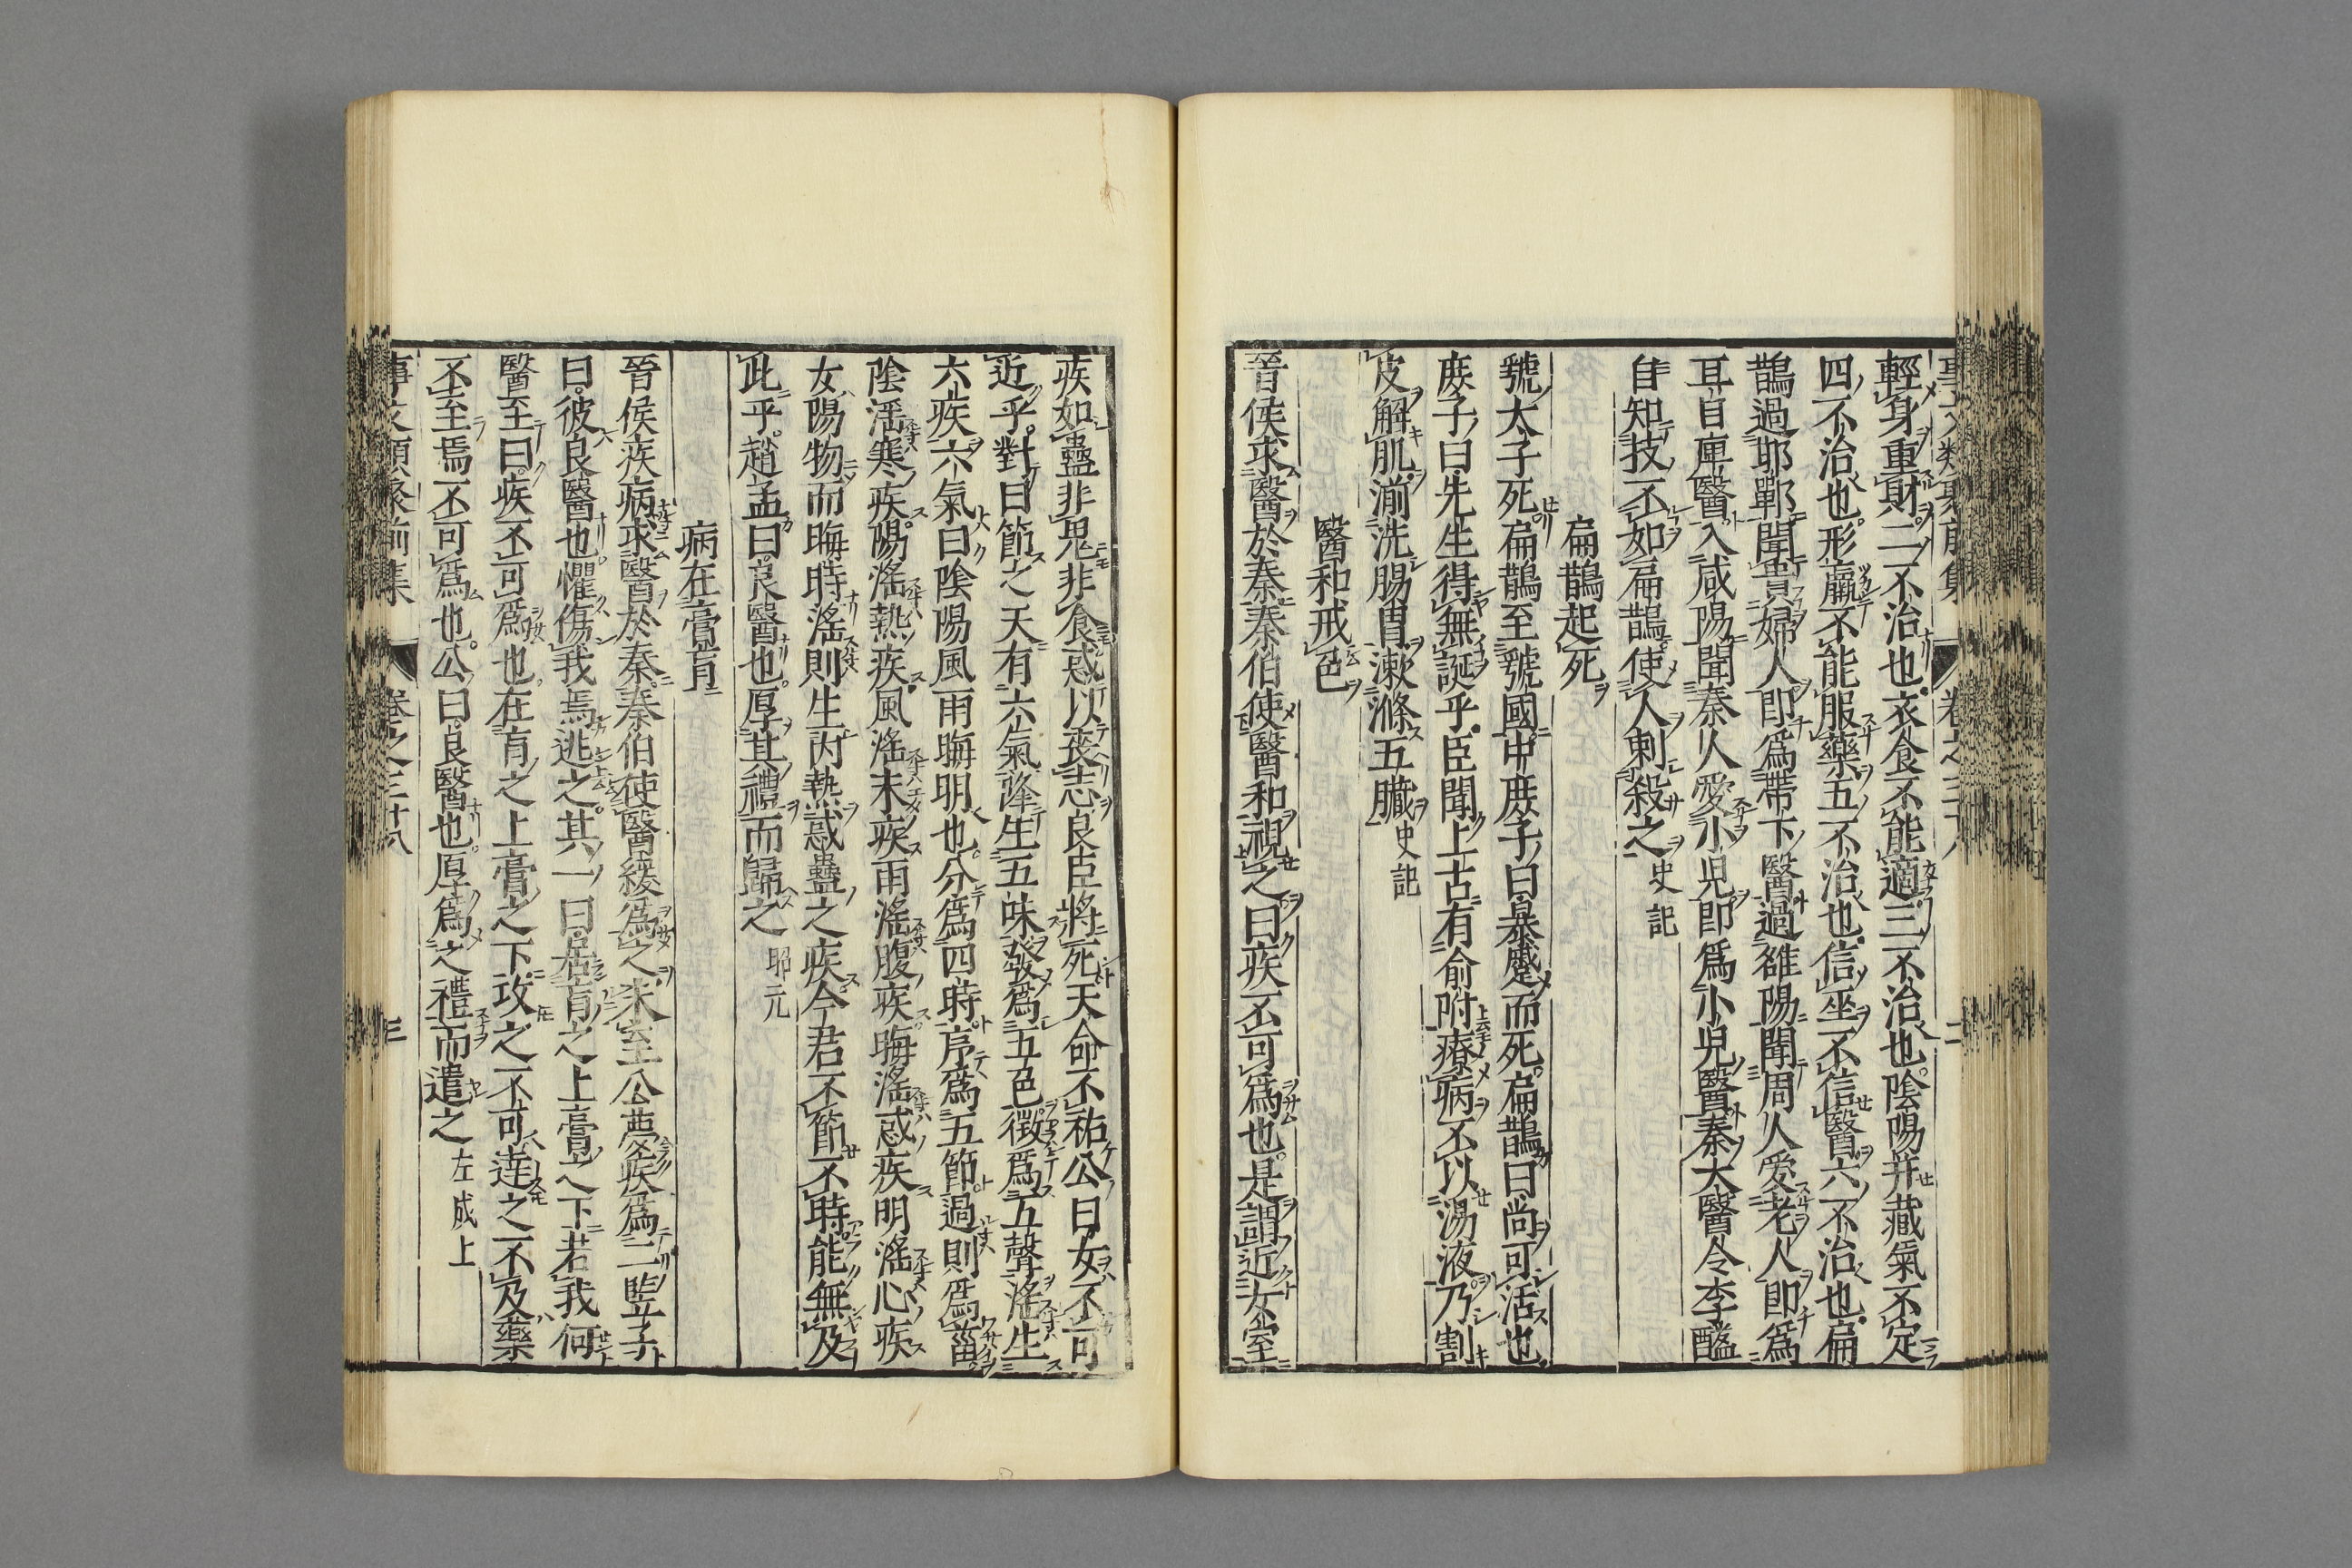 事文類聚前集 卷之三十八 二
輕身重財二不治也衣食不能適三不治也陰陽并藏氣不定
四不治也形羸不能服藥五不治也信巫不信醫六不治也扁
鵲過邯鄲聞貴婦人即爲帶下醫過雒陽聞周人愛老人即爲
耳目痺醫入咸陽聞秦人愛小兒即爲小兒醫秦太醫令李醯
自知技不如扁鵲使人刺殺之史記
扁鵲起死
虢太子死扁鵲至虢國中庶子曰暴蹷而死扁鵲曰尚可活也
庶子曰先生得無誕乎臣聞上古有俞附療病不以湯液乃割
皮解肌湔洗腸胃漱滌五臟史記
醫和戒色
晉侯求醫於秦秦伯使醫和視之曰疾不可爲也是謂近女室
疾如蠱非鬼非食惑以喪志良臣將死天命不祐公曰女不可
近乎對曰節之天有六氣降生五味發爲五色徵爲五聲滛生
六疾六氣曰陰陽風雨晦明也分爲四時序爲五節過則爲菑
陰滛寒疾陽滛熱疾風滛末疾雨滛腹疾晦滛惑疾明滛心疾
女陽物而晦時滛則生内熱惑蠱之疾今君不節不時能無及
此乎趙孟曰良醫也厚其禮而歸之昭元
病在膏肓
晉侯疾病求醫於秦秦伯使醫緩爲之未至公夢疾爲二豎子
曰彼良醫也懼傷我焉逃之其一曰居肓之上膏之下若我何
醫至曰疾不可爲也在肓之上膏之下攻之不可達之不及藥
不至焉不可爲也公曰良醫也厚爲之禮而遣之左成上
事文類聚前集 卷之三十八 三